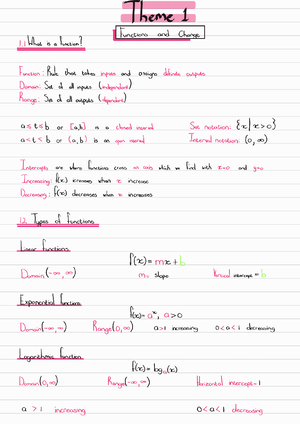 Theme 1
Functions and Change
1.1 What is a function?
Function: Rule that takes inputs and assigns definite outputs.
Domain: Set of all inputs (independent)
Range: Set of all outputs (dependent)
a ≤ t ≤ b or [a,b] is a closed interval
Set notation: {x|x>0}
a < t < b or (a,b) is an open interval
Interval notation: (0,∞)
Intercepts are where functions cross an axis which we find with x=0 and y=0
Increasing: f(x) increases when x increase
Decreasing: f(x) decreases when x increases
1.2 Types of functions
Linear functions
f(x)=mx+b
Domain (-∞,∞)
m= slope
intercept = b
Exponential functions
f(x)=aˣ, a>0
Domain (-∞,∞)
Range (0,∞)
a>1 increasing
0<a<1 decreasing
Logarithmic function
f(x)= log (x)
Domain (0,∞)
Range (-∞,∞)
Horizontal intercept=1
a > 1 increasing
0<a<1 decreasing